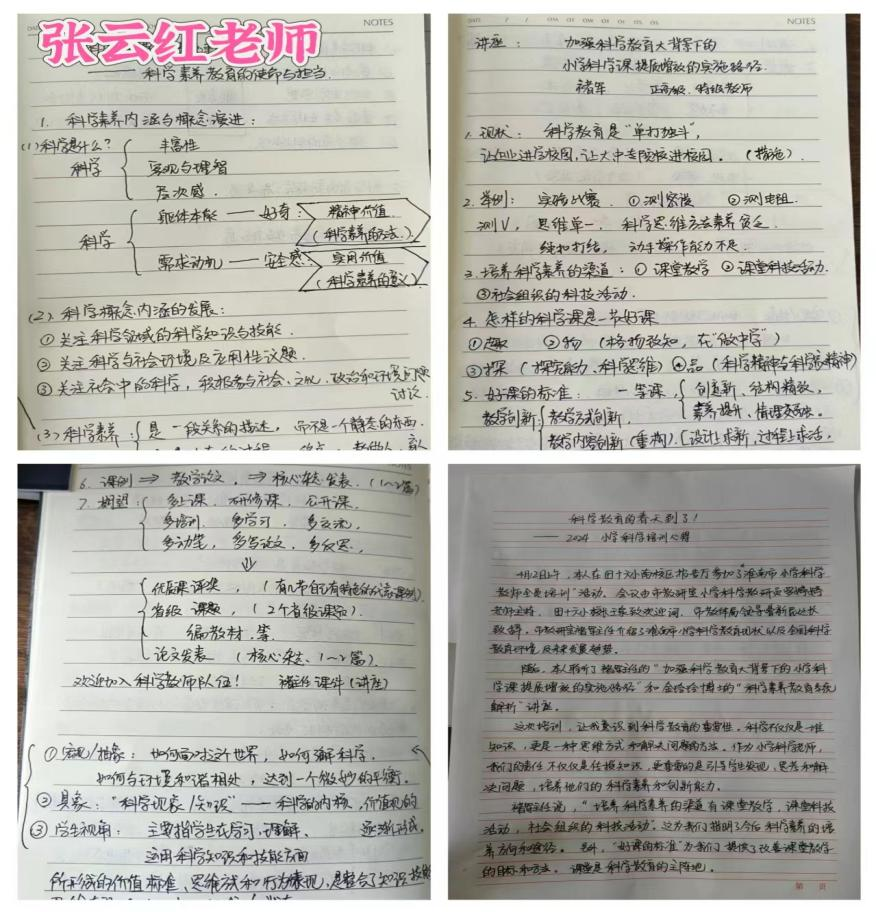 张云红老师
NOTES
——科学素养教育的使命与担当.
1. 科学素养内涵与概念演进:
(1)科学是什么?
科学
丰富性
客观与理智
层次感.
科学
躯体本能——好奇:
精神价值.
(科学素养的方法.)
需求动机——安全感:
实用价值
(科学素养的意义)
(2). 科学概念内涵的发展:
① 关注科学领域的科学知识与技能.
② 关注科学与社会环境及应用性议题.
③ 关注社会中的科学, 积极参与社会、文化、政治和环境问题
讨论.
(3)科学素养: 是一段关系的描述, 而不是一个静态的东西.
NOTES
讲座: 加强科学教育大背景下的
小学科学课提质增效的实施路径.
褚军 正高级. 特级教师
1. 现状: 科学教育是“单打独斗”,
让企业进学校园, 让大中专院校进校园. (措施).
2. 举例: 实验比赛. ①测密度 ②测电阻.
测V, 思维单一. 科学思维方法素养贫乏.
绳扣打结, 动手操作能力不足.
3. 培养科学素养的渠道: ①课堂教学 ②课堂科技活动.
③社会组织的科技活动.
4. 怎样的科学课是一节好课
①趣 ②物 (格物致知, 在“做中学”)
③探 (探究能力、科学思维) ④品 (科学精神与科学家精神)
5. 好课的标准: 一等课, 创造新、结构精效,
素养提升、情理交融.
教学创新: 教学方式创新.
教学内容创新 (重构). 设计求新, 过程求活,
6. 课例 ⇒ 教学论文, ⇒ 核心杂志发表. (1~2篇)
7. 期望: 多上课. 研修课, 公开课.
多培训. 多学习. 多交流.
多动笔, 多写论文, 多反思.
优质课评奖, (有几节自己有特色的优质课例).
省级课题, (2个省级课题).
编教材, 等.
论文发表 (核心杂志、1~2篇).
欢迎加入科学教师队伍! 褚主任课件(讲座)
① 宏观/抽象: 如何面对这个世界, 如何理解科学.
如何与环境和谐相处, 达到一个微妙的平衡.
② 具象: “科学现象/知识”——科学的内核, 价值观的
③ 学生视角: 主要指学生在学习、理解、逐渐形成.
运用科学知识和技能方面
所形成的价值标准、思维方式和行为表现, 是整合了知识技能
科学教育的春天到了!
—— 2024 小学科学培训心得
4月12日上午, 本人在田十六小南校区报告厅参加了淮南市小学科学
教师全员培训活动. 会议由市教研室小学科学教研员
老师主持. 田十六小校长家致欢迎词.
致辞, 市教研室褚军主任介绍了淮南市小学科学教育现状以及全国科学
教育环境及未来发展趋势.
随后, 本人聆听了褚军主任的“加强科学教育大背景下的小学科
学课提质增效的实施路径”和金博士的“科学素养教育系统
解析”讲座.
这次培训, 让我意识到科学教育的重要性. 科学不仅仅是一堆
知识, 更是一种思维方式和解决问题的方法. 作为小学科学老师,
我们的责任不仅仅是传授知识, 更重要的是引导学生发现、思考和解
决问题, 培养他们的科学素养和创新能力.
褚军主任说, “培养科学素养的渠道有课堂教学, 课堂科技
活动, 社会组织的科技活动”. 这为我们指明了今后科学素养的培
养方向和途径. 另外, “好课的标准”为我们提供了改善课堂教学
的目标和方法. 课堂是科学教育的主阵地.
第 页